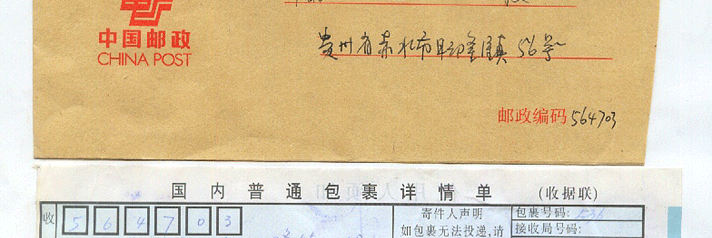 中国邮政
CHINA POST
贵州省赤水市旺隆镇56号
邮政编码564703
国内普通包裹详情单 (收据联)
收 564703
寄件人声明
包裹号码:
如包裹无法投递,请
接收局号码: